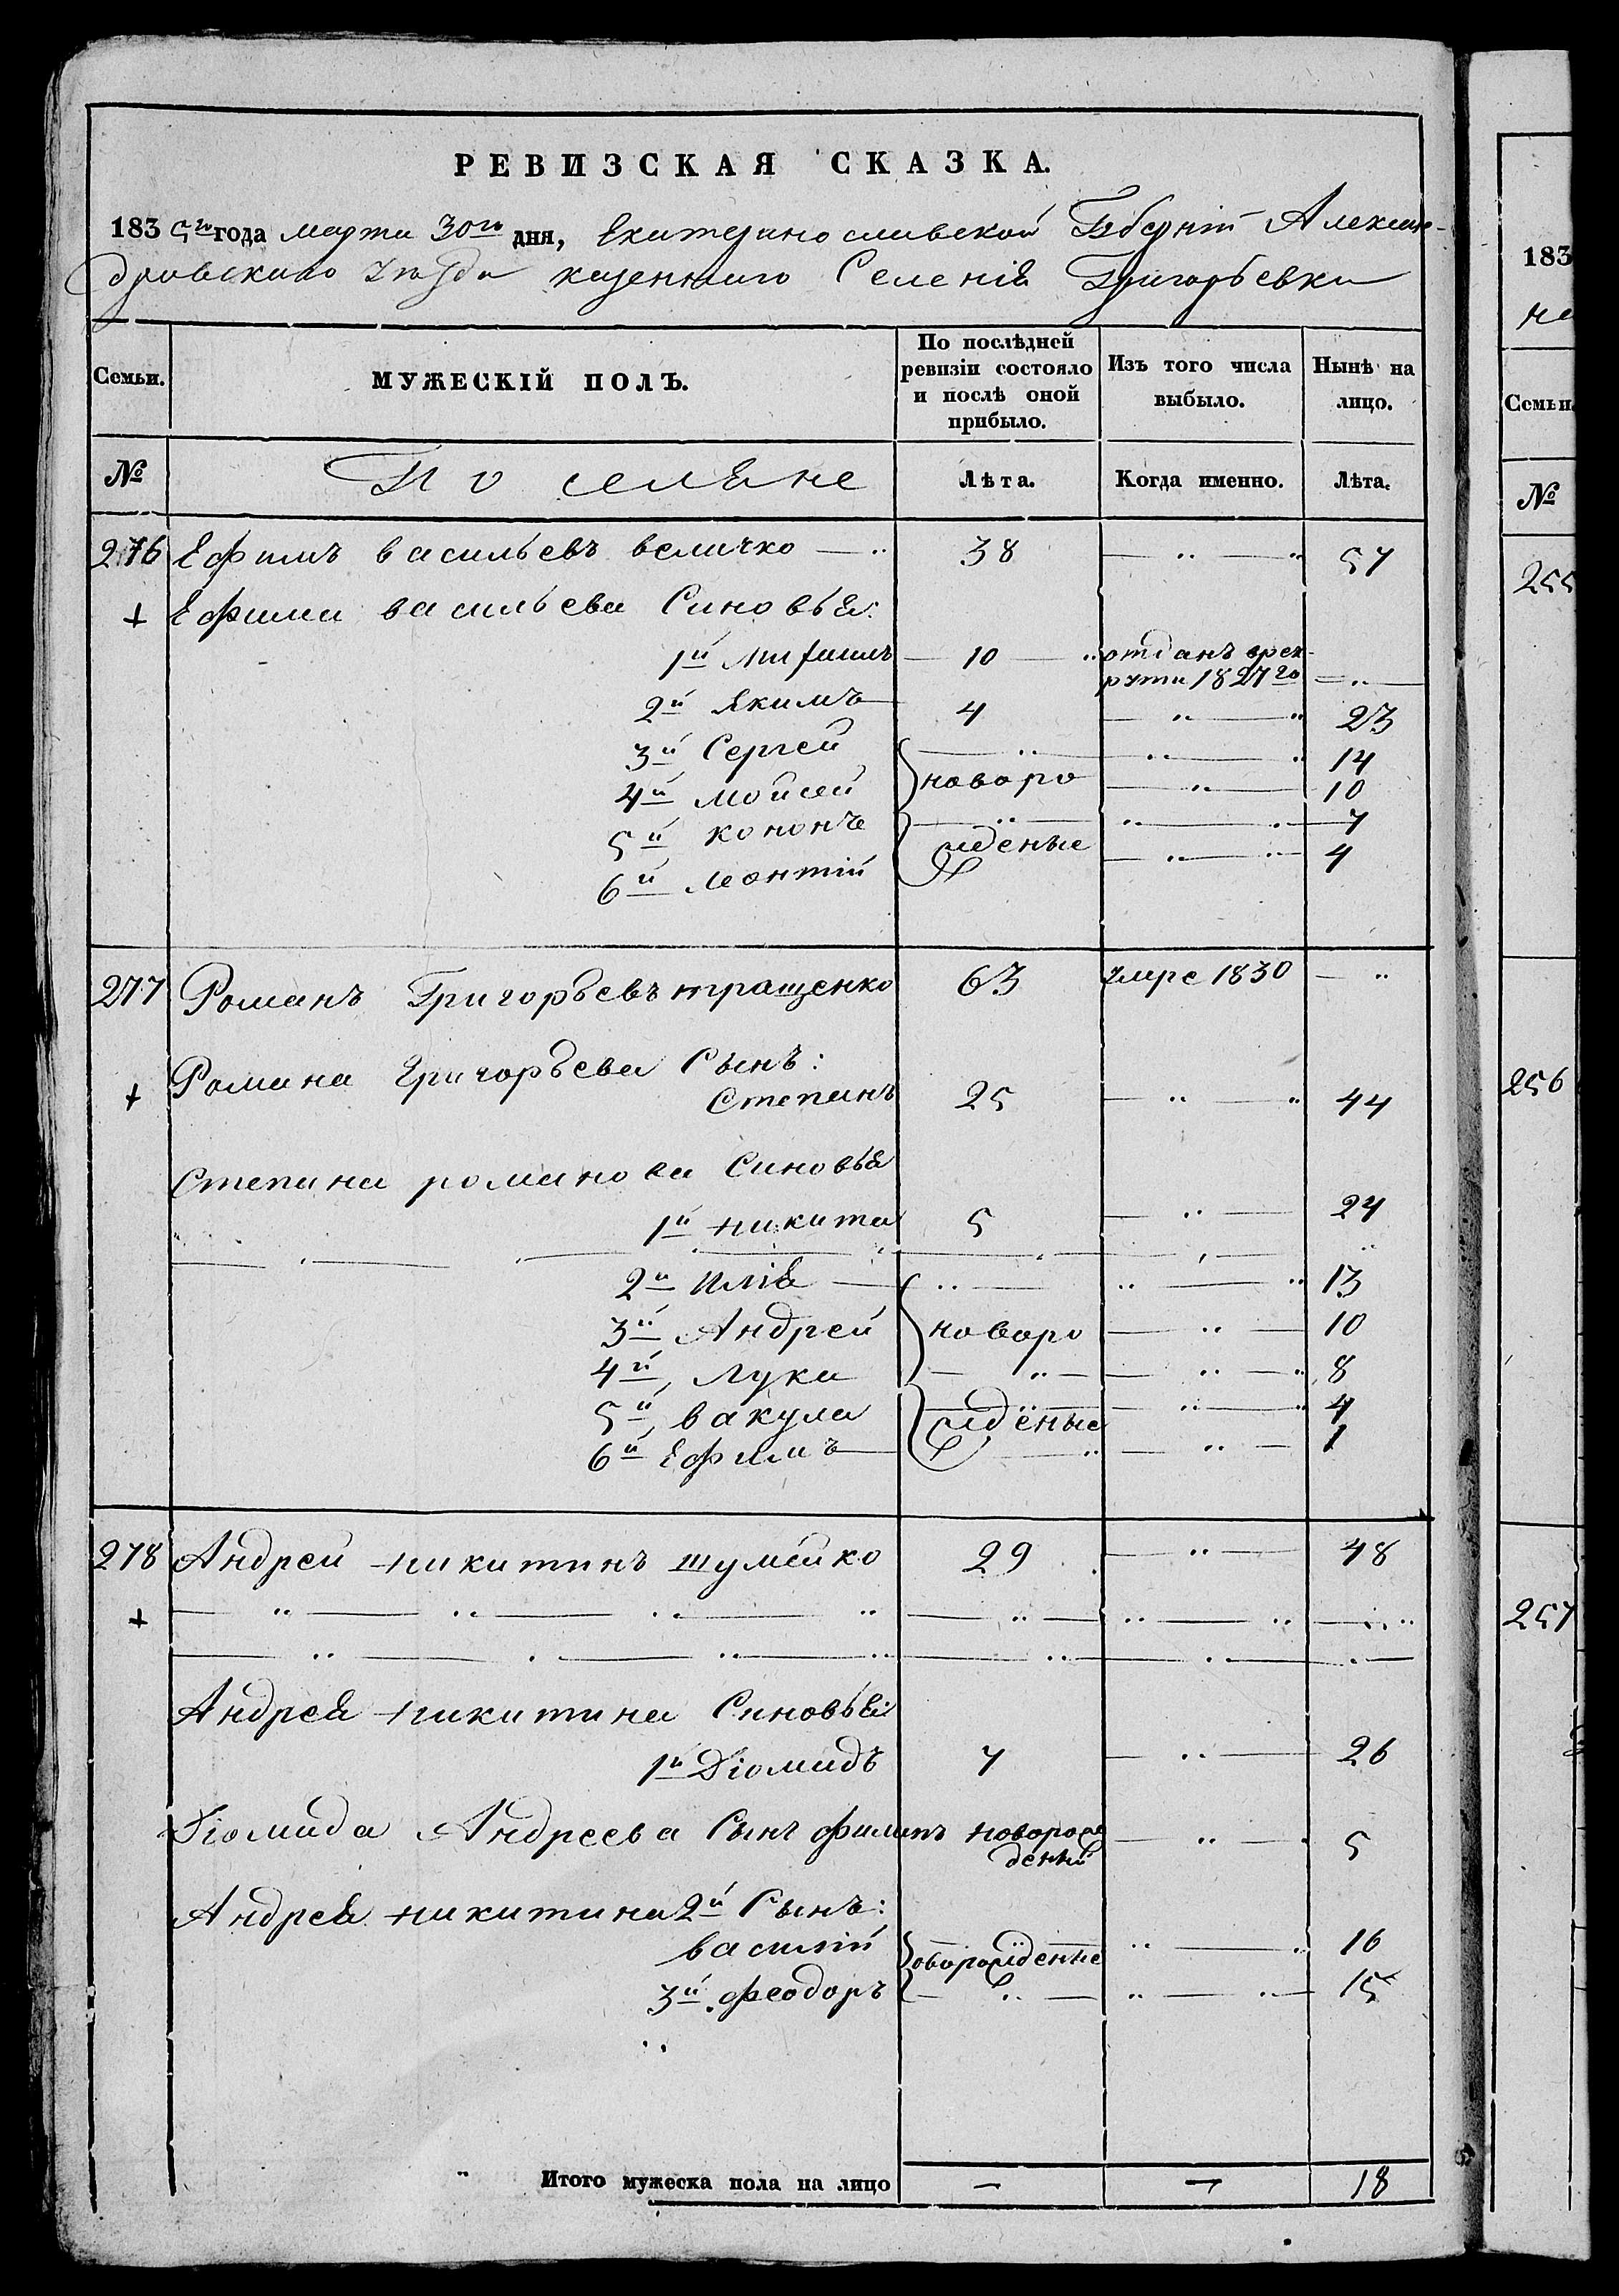 РЕВИЗСКАЯ СКАЗКА.
1835го года марта 30го дня, Екатеринославской Губерніи Алексан-
дровскаго уезда казеннаго Селенія Григорьевки
Семьи. МУЖЕСКІЙ ПОЛЪ. По послѣдней ревизіи состояло и послѣ оной прибыло. Изъ того числа выбыло. Нынѣ на лицо.
№ Поселяне Лѣта. Когда именно. Лѣта.
276 Ефимъ васильевъ величко 38 57
+ Ефима васильева Синовья:
1й 10 отданъ врек-
руты 1827го
2й Якимъ 4 23
3й Сергей 14
4й Мойсей новоро 10
5й кононъ 7
6й леонтій жденые 4
277 Романъ Григорьевъ тращенко 63 умре 1830
+ Романа Григорьева Сынъ:
Степанъ 25 44
Степана романова Синовья
1й никита 5 24
2й илія 13
3й Андрей новоро 10
4й Лука 8
5й вакула жденые 4
6й Ефимъ 1
278 Андрей никитинъ шумейко 29 48
+
Андрея никитина Синовья
1й Діомидъ 7 26
Діомида Андреева Сынъ филипъ новорож
деный 5
Андрея никитина 2й Сынъ:
василій новорожденые 16
3й феодоръ 15
Итого мужеска пола на лицо — — 18
183
на
Семьи.
№
255
256
257